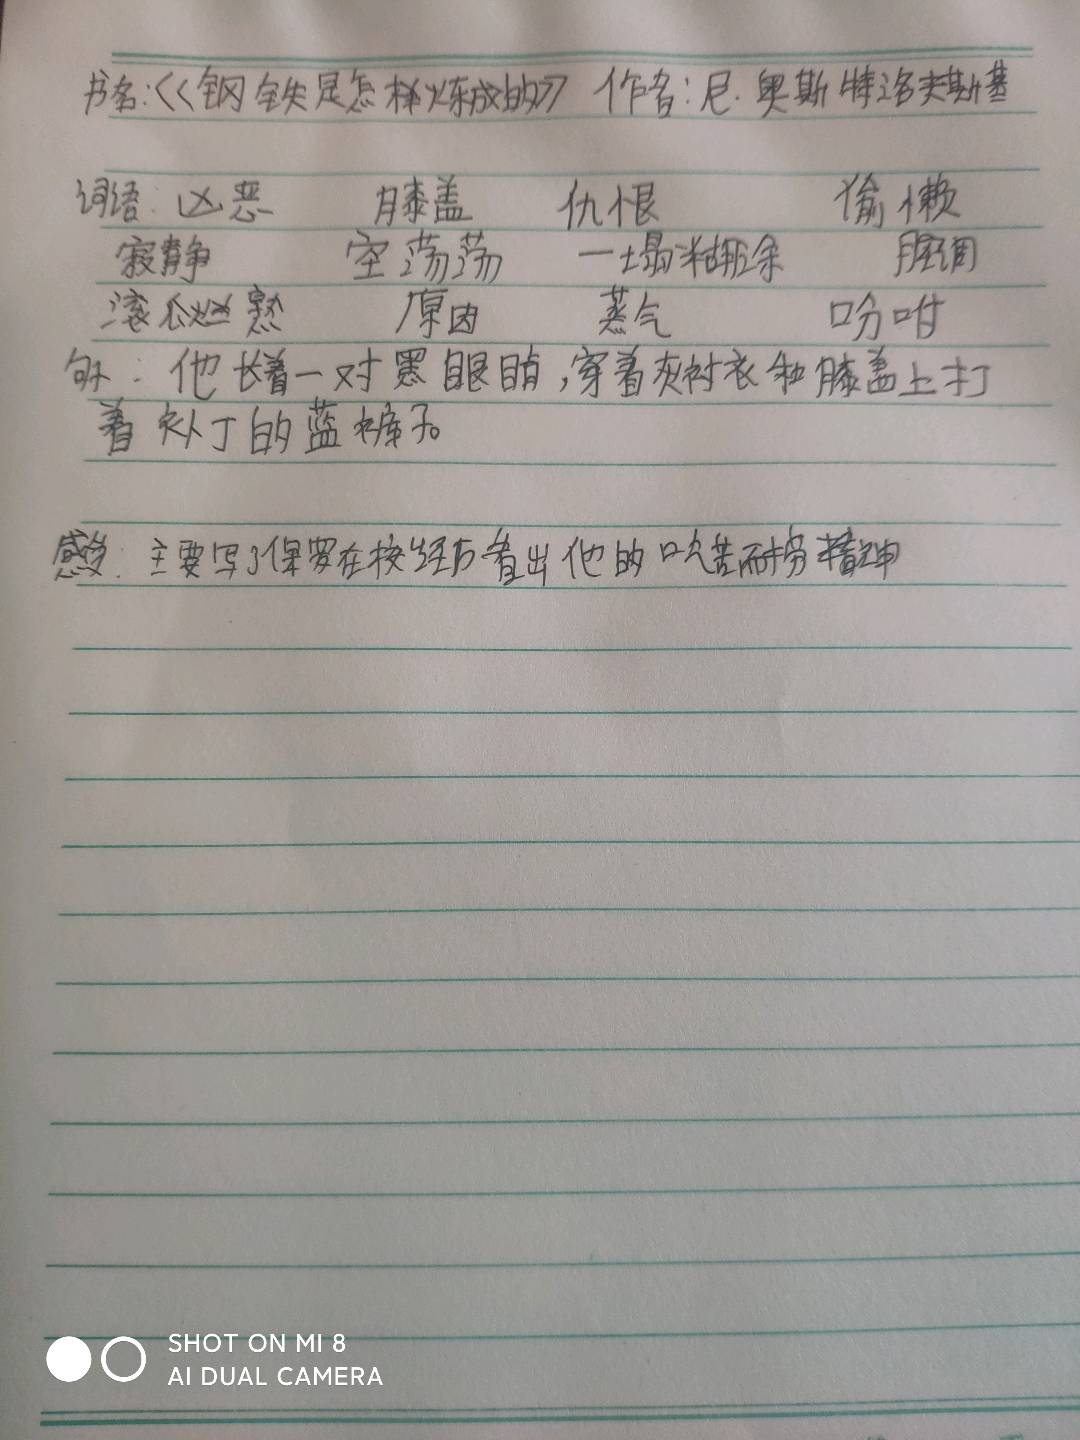 书名:《钢铁是怎样炼成的》 作者:尼·奥斯特洛夫斯基
词语: 凶恶 膝盖 仇恨 偷懒
寂静 空荡荡 一塌糊涂 腔调
滚瓜烂熟 原因 蒸气 吩咐
句子: 他长着一对黑眼睛,穿着灰衬衣和膝盖上打
着补丁的蓝裤子。
感受: 主要写了保罗在校经历看出他的吃苦耐劳精神
SHOT ON MI 8
AI DUAL CAMERA